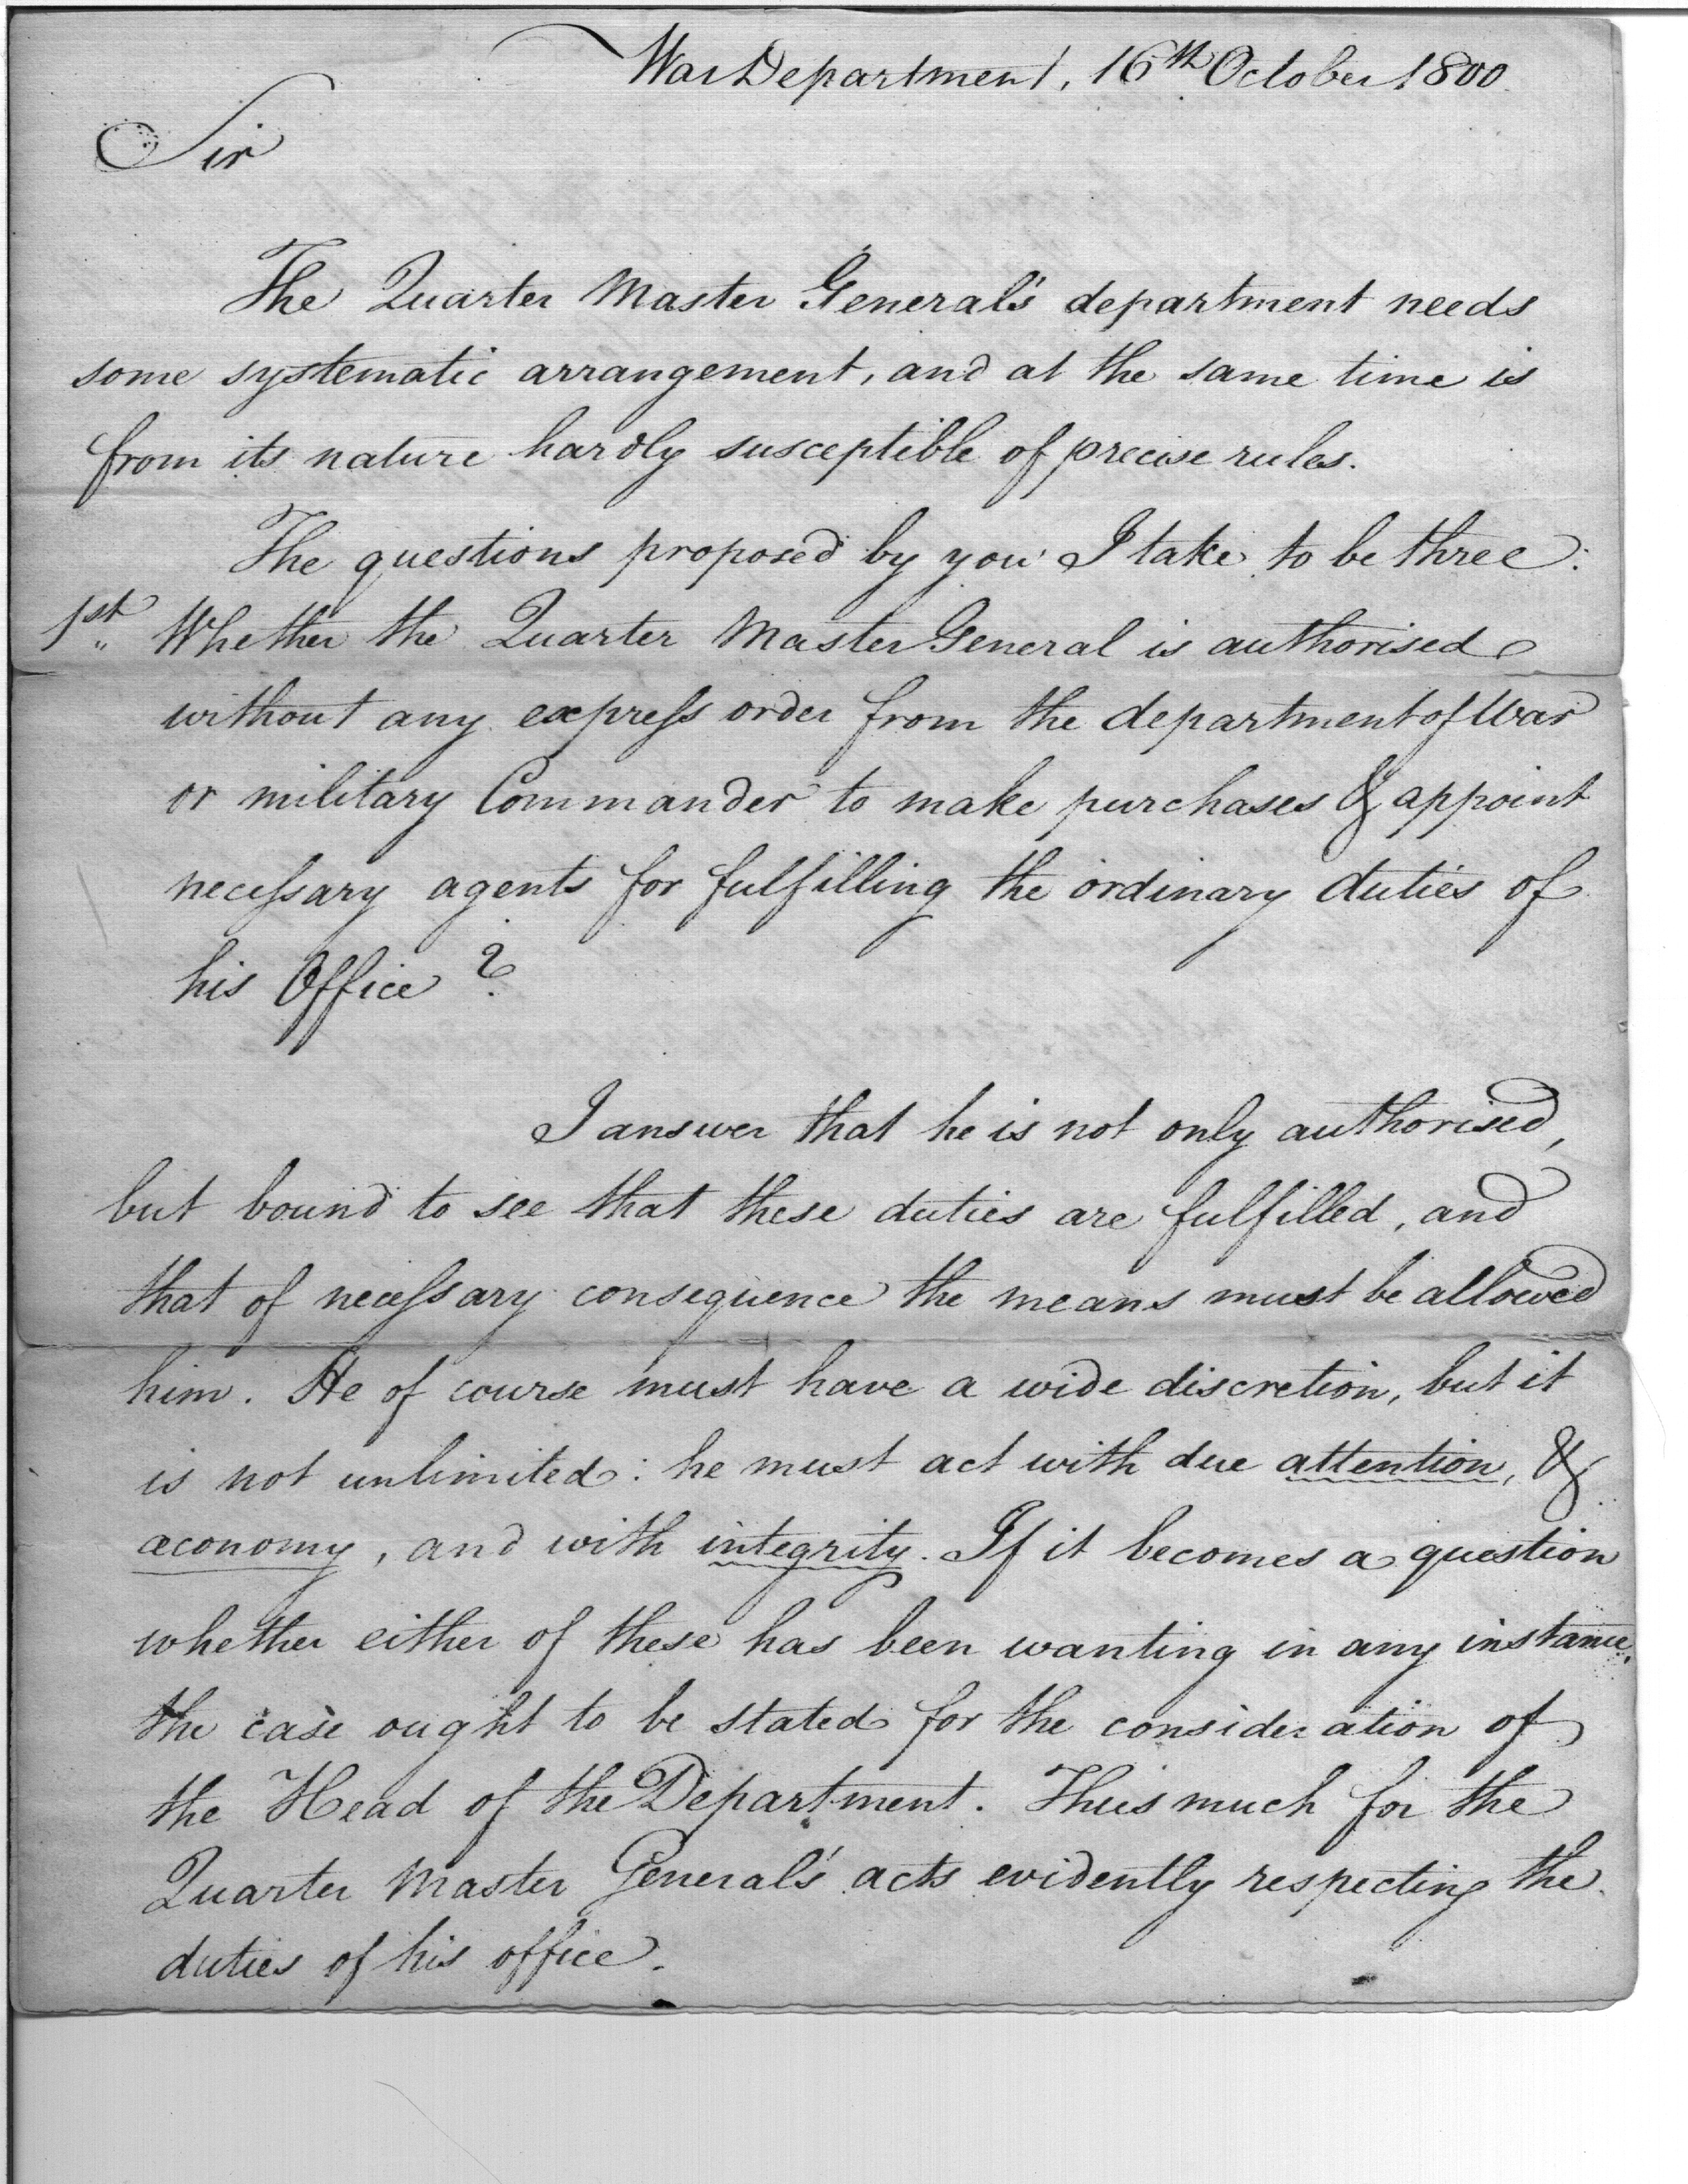 War Department, 16th October 1800.
Sir
The Quarter Master General's department needs
some systematic arrangement, and at the same time is
from its nature hardly susceptible of precise rules.
The questions proposed by you I take to be three:
1st Whether the Quarter Master General is authorised
without any express order from the department of War
or military Commander to make purchases & appoint
necessary agents for fulfilling the ordinary duties of
his Office?
I answer that he is not only authorised,
but bound to see that these duties are fulfilled, and
that of necessary consequence the means must be allowed
him. He of course must have a wide discretion, but it
is not unlimited: he must act with due attention, &
œconomy, and with integrity. If it becomes a question
whether either of these has been wanting in any instance,
the case ought to be stated for the consideration of
the Head of the Department. Thus much for the
Quarter Master General's acts evidently respecting the
duties of his office.